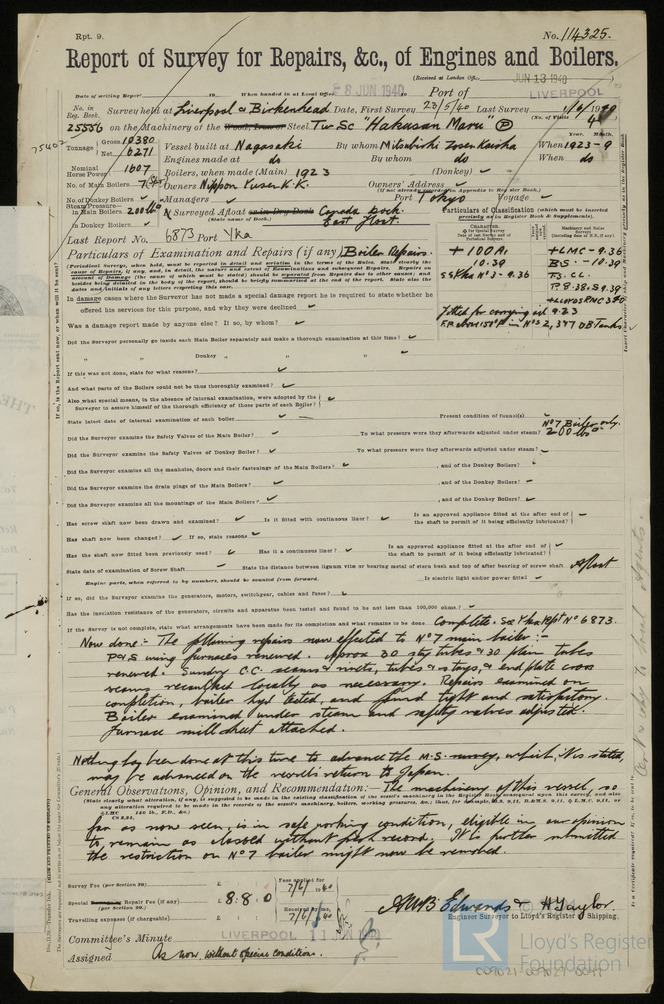 Rpt. 9.
No. 114325.
Report of Survey for Repairs, &c., of Engines and Boilers.
(Received at London Office JUN 13 1940
Date of writing Report 19 When handed in at Local Office 8 JUN 1940 Port of LIVERPOOL
No. in Reg. Book. Survey held at Liverpool & Birkenhead Date, First Survey 23/5/40 Last Survey 1/6/1940
(No. of Visits 4)
25556 on the Machinery of the Wood, Iron or Steel Tw Sc "Hakusan Maru"
75402
Tonnage Gross 10380 Net 6271
Vessel built at Nagasaki By whom Mitsubishi Zosen Kaisha When 1923-9
Year. Month.
Engines made at do By whom do When do
Nominal Horse Power 1607
Boilers, when made (Main) 1923 (Donkey) ✓
No. of Main Boilers 7
Owners Nippon Yusen K.K. Owners' Address ✓
(If not already recorded in Appendix to Register Book.)
No. of Donkey Boilers ✓
Managers ✓ Port Tokyo Voyage ✓
Steam Pressure—
in Main Boilers 200 lb
in Donkey Boilers ✓
If Surveyed Afloat or in Dry Dock Canada Dock.
(State name of Dock.) East Float.
Particulars of Classification (which must be inserted precisely as in Register Book & Supplements).
Last Report No. 6873 Port Yka
Particulars of Examination and Repairs (if any) Boiler Repairs.
+ 100 A1
10.39
SS Yka No 3 - 9.36
+ LMC - 9.36
BS. - 10.39
T.S. CL.
P. 8.38. S 9.39
+ LLOYDS RMC 3.30
Fitted for carrying oil 9.23
F.P. above 150°F in Nos 2, 3 & 7 DB Tanks
In damage cases where the Surveyor has not made a special damage report he is required to state whether he
offered his services for this purpose, and why they were declined ✓
Was a damage report made by anyone else? If so, by whom? ✓
Did the Surveyor personally go inside each Main Boiler separately and make a thorough examination at this time? ✓
" " Donkey " " " ✓
If this was not done, state for what reasons? ✓
And what parts of the Boilers could not be thoroughly examined? ✓
Also what special means, in the absence of internal examination, were adopted by the
Surveyor to assure himself of the thorough efficiency of those parts of each Boiler? ✓
State latest date of internal examination of each boiler ✓ Present condition of funnel(s)
Did the Surveyor examine the Safety Valves of the Main Boiler? ✓ To what pressure were they afterwards adjusted under steam? No 7 Boiler only. 200 lbs
Did the Surveyor examine the Safety Valves of Donkey Boiler? ✓ To what pressure were they afterwards adjusted under steam? –
Did the Surveyor examine all the manholes, doors and their fastenings of the Main Boilers? ✓ , and of the Donkey Boilers? ✓
Did the Surveyor examine the drain plugs of the Main Boilers? ✓ , and of the Donkey Boilers? ✓
Did the Surveyor examine all the mountings of the Main Boilers? ✓ , and of the Donkey Boilers? ✓
Has screw shaft now been drawn and examined? ✓ Is it fitted with continuous liner? ✓ Is an approved appliance fitted at the after end of
the shaft to permit of it being efficiently lubricated? –
Has shaft now been changed? ✓ If so, state reasons ✓
Has the shaft now fitted been previously used? ✓ Has it a continuous liner? ✓ Is an approved appliance fitted at the after end of
the shaft to permit of it being efficiently lubricated? –
State date of examination of Screw Shaft ✓ State the distance between lignum vitæ or bearing metal of stern bush and top of after bearing of screw shaft Afloat
Engine parts, when referred to by numbers, should be counted from forward. Is electric light and/or power fitted ✓
If so, did the Surveyor examine the generators, motors, switchgear, cables and fuses? ✓
Has the insulation resistance of the generators, circuits and apparatus been tested and found to be not less than 100,000 ohms? ✓
If the Survey is not complete, state what arrangements have been made for its completion and what remains to be done Complete: See Yka Rpt No 6873.
Now done:- The following repairs now effected to No 7 main boiler:-
P & S wing furnaces renewed. Approx 30 stay tubes & 30 plain tubes
renewed. Sundry C.C. seams & rivets, tubes & stays, & end plate cross
seams recaulked locally as necessary. Repairs examined on
completion, boiler hyd tested, and found tight and satisfactory.
Boiler examined under steam and safety valves adjusted.
Furnace mill sheet attached.
Nothing has been done at this time to advance the M.S. survey, which, it is stated,
may be advanced on the vessel's return to Japan.
General Observations, Opinion, and Recommendation:— The machinery of this vessel, so
far as now seen, is in safe working condition, eligible in our opinion
to remain as classed without fresh record. It is further submitted
the restriction on No 7 boiler might now be removed.
Survey Fee (per Section 29) £ : :
Fees applied for 7/6/1940
Special Repair Fee (if any) £ 8. 8. 0
(per Section 29.)
Received by me, 7/6/1940
Travelling expenses (if chargeable) £ : :
A.W.B. Edwards & H Taylor.
Engineer Surveyor to Lloyd's Register of Shipping.
Committee's Minute LIVERPOOL 11 JUN 1940
Assigned As now, without special condition.
LR
© Lloyd's Register
Foundation